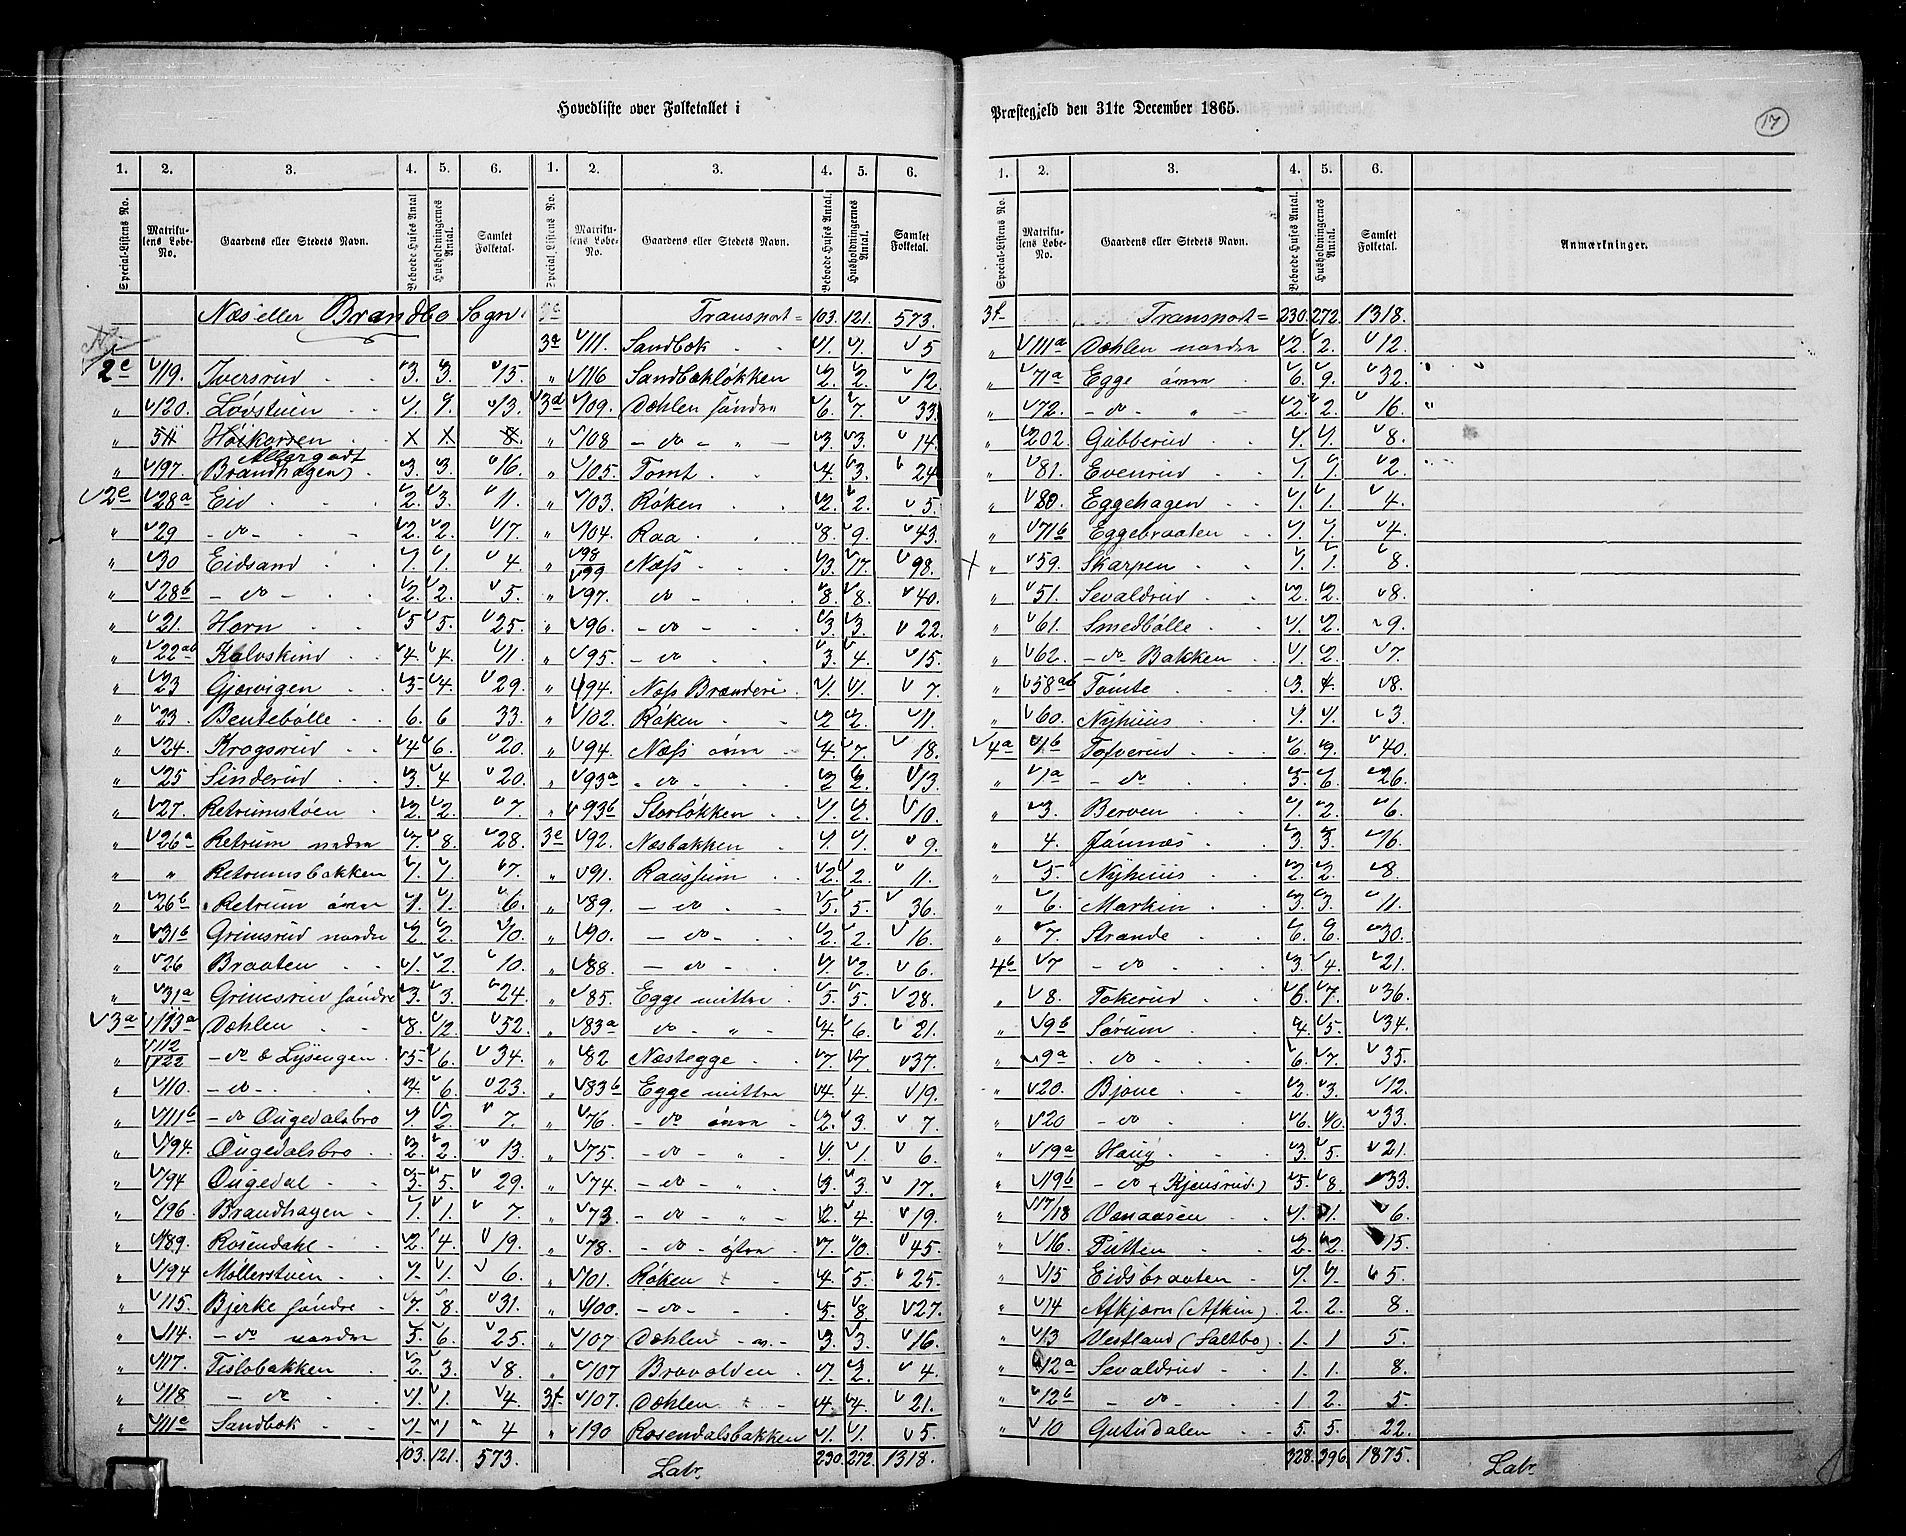 Hovedliste over Folketallet i
Præstegjeld den 31te December 1865.
17
1. 2. 3. 4. 5. 6. 1. 2. 3. 4. 5. 6.
Special-Listens No. Matrikulens Løbe-No. Gaardens eller Stedets Navn. Beboede Huses Antal Husholdningernes Antal. Samlet Folketal.
Special-Listens No. Matrikulens Løbe-No. Gaardens eller Stedets Navn. Beboede Huses Antal. Husholdningernes Antal Samlet Folketal
Næs eller Brandbo Sogn
2c 119. Iversrud 3. 3. 15.
" 120. Løvstuen 1. 1. 13.
" 54 Høikorsen X X 8.
Allergodt
" 197. (Brandhagen) 3. 3. 16.
2e 28a Eid 2. 3. 11.
" 29 -do- 2. 2. 17.
" 30 Eidsand 1. 1. 4.
" 28b -do- 2. 2. 5.
" 21. Horn 5. 5. 25.
" 22ab Kalvskind 4. 4. 11.
" 23 Gjærvigen 3. 4. 29.
" 23. Bentebølle 6. 6 33.
" 24. Krogsrud 4. 6. 20.
" 25 Sinderud 3. 4 20.
" 27. Retrumstøen 2. 2. 7.
" 26a Retrum nedre 7. 8. 28.
" " Retrumsbakken 1. 1. 7.
" 26b Retrum øvre 1. 1. 6.
" 31b Grimsrud nordre 2. 2. 10.
" 26 Braaten 1. 2. 10.
" 31a Grimsrud søndre 3. 3. 24.
3a 113a Dæhlen 8. 12. 52.
" 112 122 -do & Lysengen 5. 6. 34.
" 110. -do- 4. 6. 23.
" 111b -do Ougedalsbro 1. 2. 7.
" 194. Ougedalsbro 2. 2. 13.
" 194 Ougedal 5. 5. 29.
" 196. Brandhagen 1. 1. 7.
" 189. Rosendahl 2. 4. 19.
" 194 Møllerstuen 1. 1. 6.
" 115. Bjerke søndre 7. 8. 31.
" 114. -do nordre 5. 6. 25.
" 117. Tislobakken 2. 3. 8.
" 118 -do 1. 1. 4.
" 111c Sandbæk 1. 1 4
103. 121. 573.
Transport = 103. 121. 573.
3a 111. Sandbæk 1. 1. 5
" 116 Sandbækløkken 2. 2. 12.
3d 109. Dæhlen søndre 6. 7. 33.
" 108 -do- " 3. 3. 14.
" 105. Tomt 4. 3. 24
" 103. Røken 2. 2. 5.
" 104. Raa 8. 9. 43.
" 98 99 Næss 13. 17. 98.
" 97. do- 8. 8. 40.
" 96. -do 3. 3. 22.
" 95. -do 3. 4. 15.
" 94. Næss Brænderi 1. 1. 7.
" 102. Røken 2 2. 11.
" 94. Næss øvre 4. 7. 18.
" 93a do- 2 2. 13.
" 93b Storløkken 1. 2. 10.
3e 92. Næsbakken 1. 1. 9.
" 91. Raissum 2. 2. 11.
" 89. -do 5. 5. 36.
" 90. -do- 2. 2. 16.
" 88. -do 1. 2. 6.
" 85. Egge mittre 5. 5. 28.
" 83a do- " 4. 6. 21.
" 82 Næstegge 7. 7. 37.
" 83b Egge mittre 4. 4. 19.
" 76. -do øvre 2. 3. 7.
" 75. -do- " 1. 1. 6.
" 74. -do " 3. 3. 17.
" 73. -do- " 2. 4. 19.
" 78. -do- østre 7. 10. 45.
" 101. Røken 4. 5. 25.
" 100. -do- 5. 8. 27.
" 107 Dæhlen 3. 3. 16.
" 107 Bravalden 1. 2. 4.
3f 107. Dæhlen 4. 4. 21.
" 190 Rosendalsbakken 1. 1. 5.
230. 272. 1318.
Latr.
1. 2. 3. 4. 5. 6. 8
Special-Listens No. Matrikulens Løbe-No. Gaardens eller Stedets Navn. Beboede Huses Antal. Husholdningernes Antal. Samlet Folketal. Anmærkninger.
3f Transport = 230. 272. 1318.
" 111a Dæhlen nordre 2. 2. 12.
" 71a Egge øvre 6. 9. 32.
" 72. -do- " 2. 2. 16.
" 202. Gubberud 1. 1. 8.
" 81. Evenrud 1. 1. 2.
" 80. Eggehagen 1. 1. 4.
" 71b Eggebraaten 1. 1. 4.
X " 59. Skarpen 1. 1. 8.
" 51. Sevaldrud 2. 2. 8.
" 61. Smedbølle 1. 2. 9.
" 62. -do- Bakken 1. 2. 7.
" 58ab Tømte 3. 4. 8.
" 60. Nyhuus 1. 1. 3.
4a 1b Tofverud 6. 9. 40.
" 1a -do 5. 6. 26.
" 3. Berven 1. 2. 6.
" 4. Jonnæs 3. 3. 16.
" 5. Nyhuus 2. 2. 8.
" 6. Morkin 3. 3. 11.
" 7. Strande 6. 6. 30.
4b 7 -do 3. 4. 21.
" 8. Tokerud 6. 7. 36.
" 9b Sørum 4. 5. 34.
" 9a -do 6. 7. 35.
" 20. Bjone 2. 3. 12.
" 20 -do 6. 10. 33.
" 19a Haug 3. 5. 21.
" 19b -do (Kjensrud.) 5. 8. 33.
" 17/18 Vanaasen 1. 1. 6.
" 16. Putten 2. 2. 15.
" 15 Eidsbraaten 1. 1. 5.
" 14 Afkjærn (Afkin) 2. 2. 8.
" 13 Vestland (Saltbo) 1. 1 5.
" 12a Sevaldrud 1. 1. 8.
" 12b -do- 1 2. 5.
" 10 Gutudalen 5. 5. 22.
328. 396 1875.
Latr.